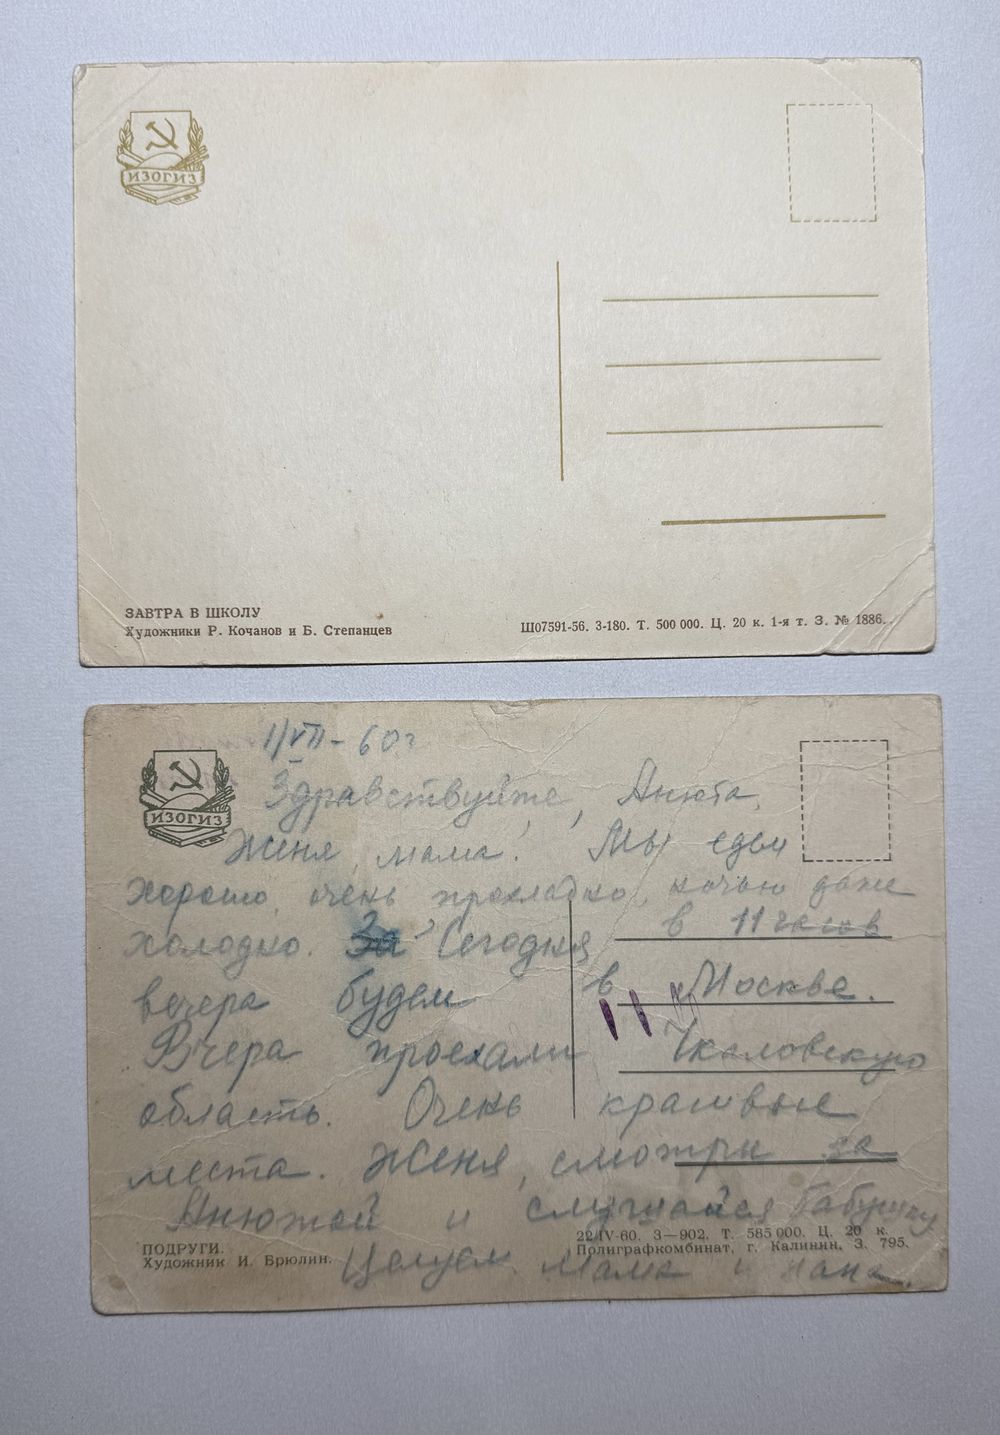 ИЗОГИЗ
ЗАВТРА В ШКОЛУ
Художники Р. Кочанов и Б. Степанцев
Ш07591-56. 3-180. Т. 500 000. Ц. 20 к. 1-я т. З. № 1886.
1/VII - 60 г
ИЗОГИЗ
Здравствуйте, Анюта,
Женя, мама! Мы едем
хорошо, очень прохладно, ночью даже
холодно. За Сегодня в 11 часов
вечера будем в Москве.
11
Вчера проехали Чкаловскую
область. Очень красивые
места. Женя, смотри за
Анютой и слушайся бабушку
ПОДРУГИ.
Художник И. Брюлин.
22/IV-60. З—902. Т. 585 000. Ц. 20 к.
Полиграфкомбинат, г. Калинин, З. 795.
Целуем. Мама и папа.